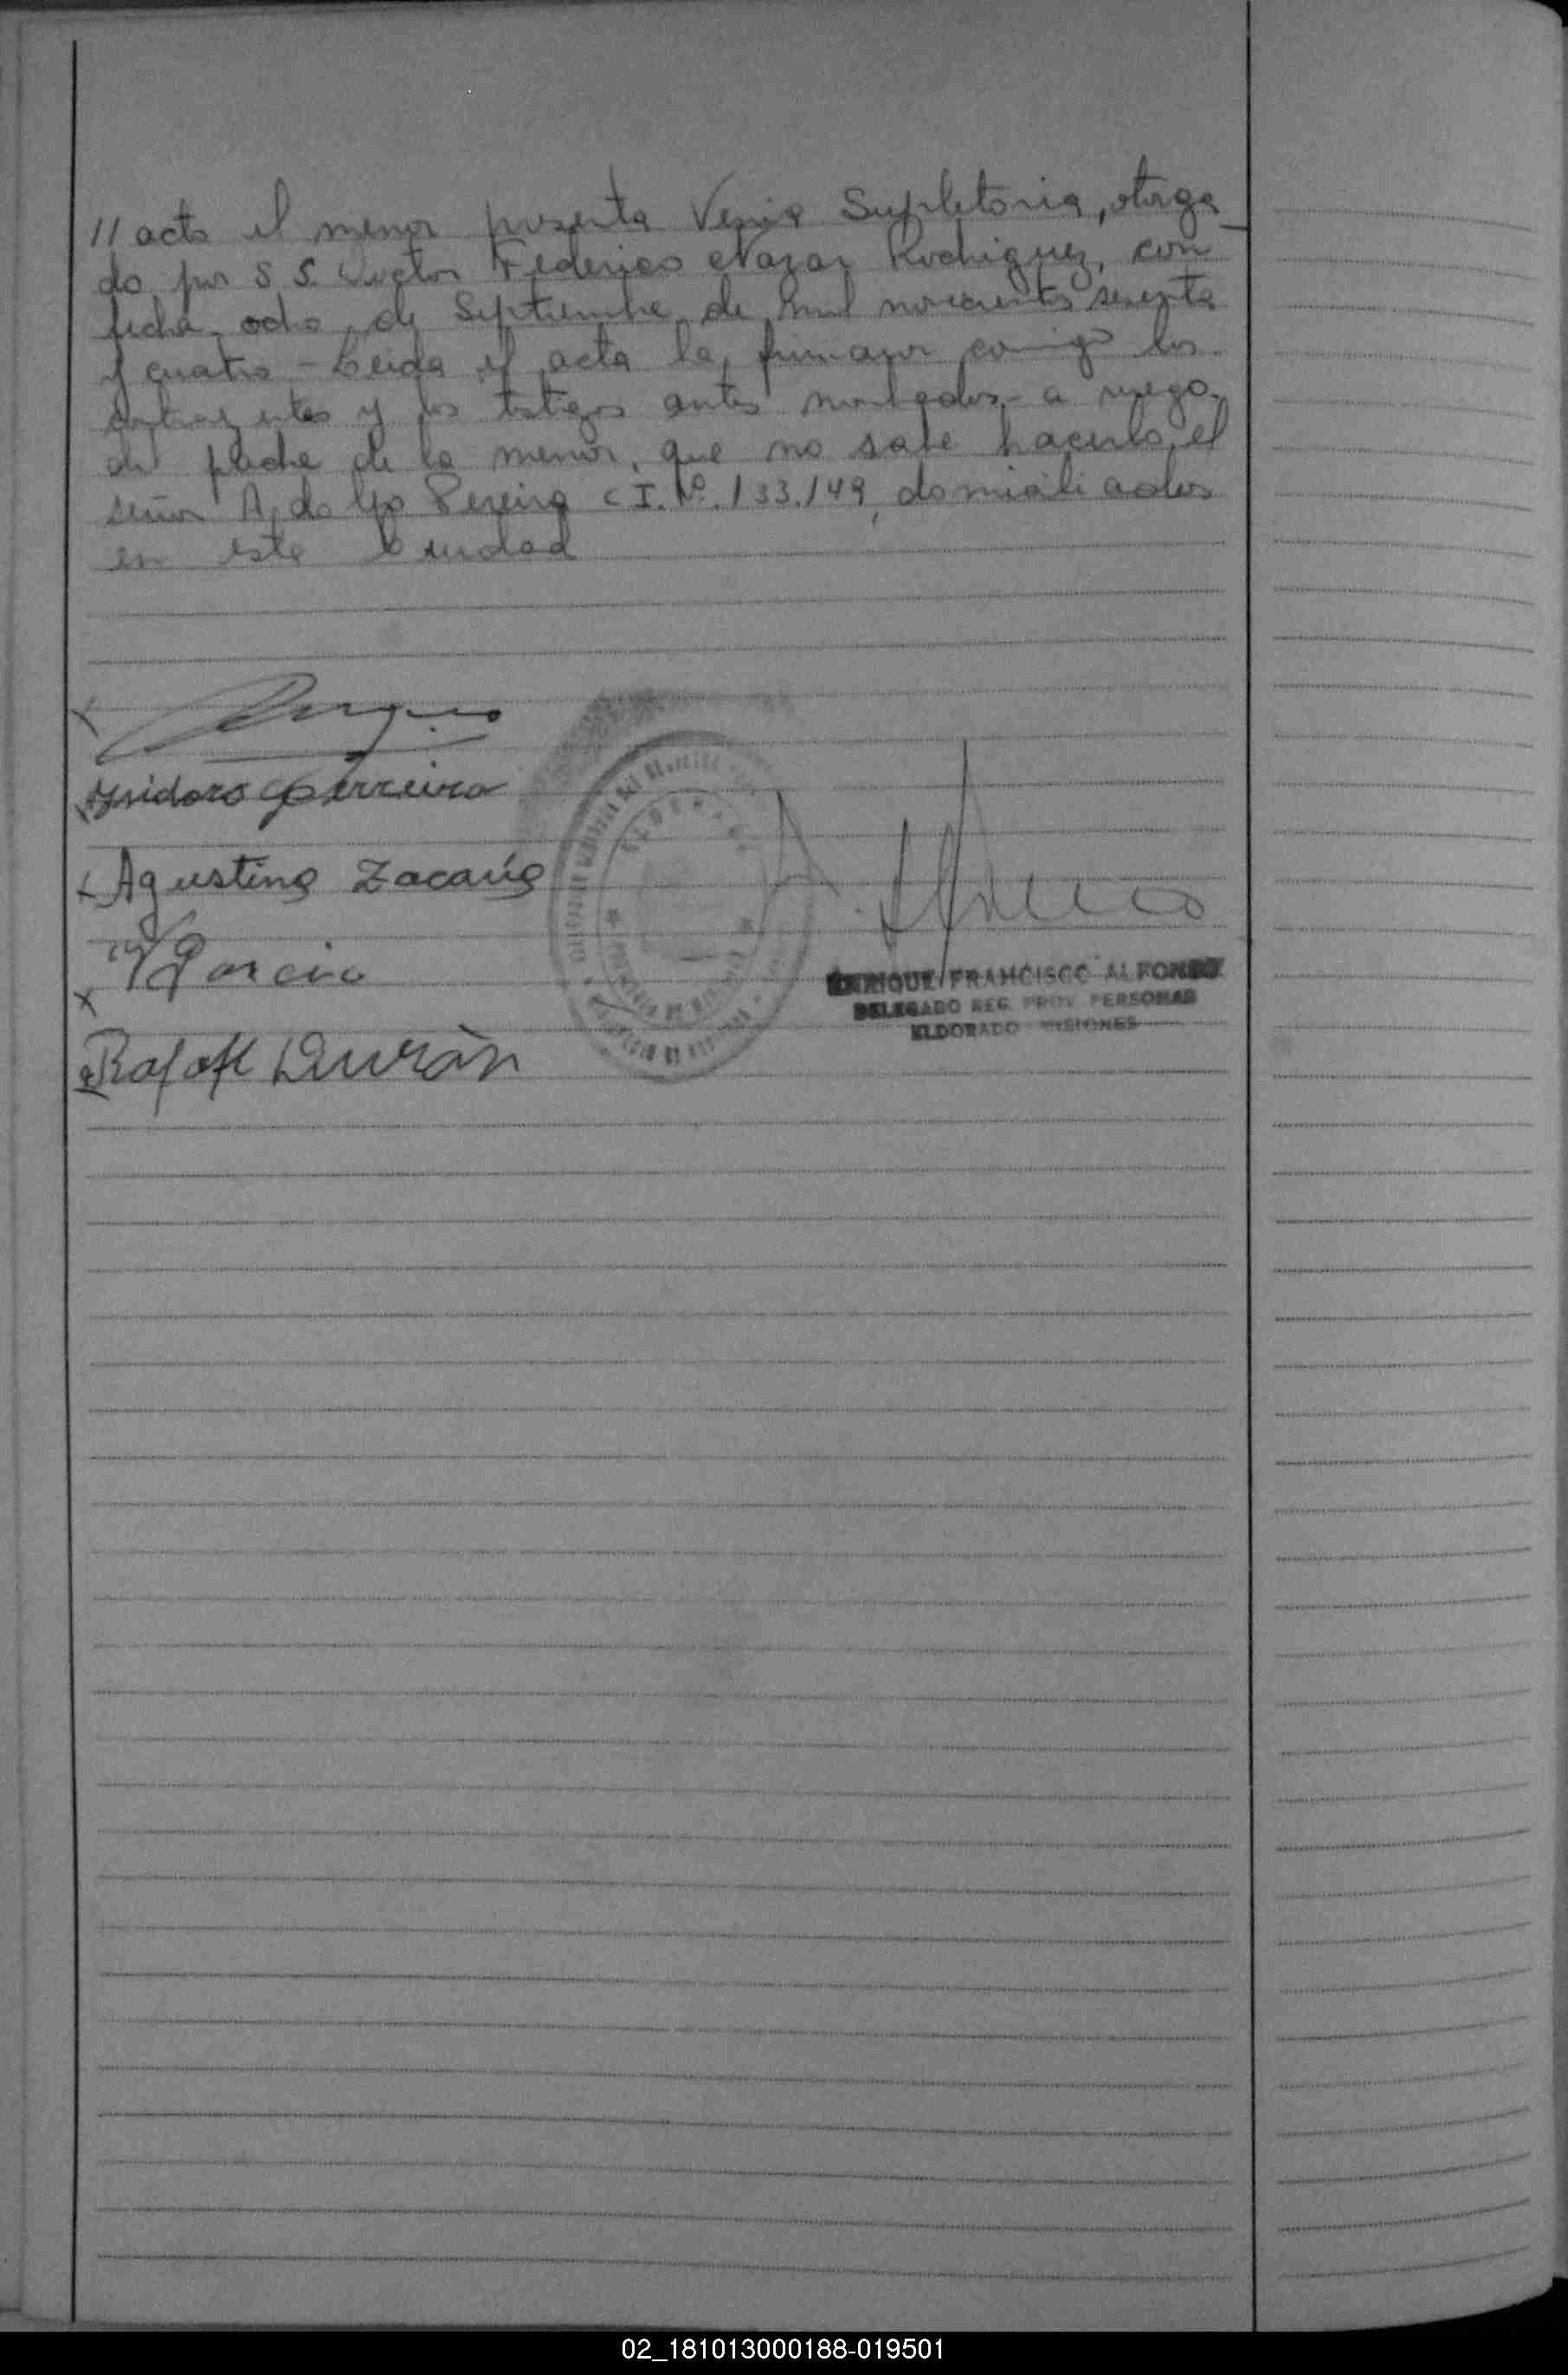 // acto el menor presenta Venia Supletoria, otorga
do por S S. Doctor Federico Nazar Rodriguez, con
fecha ocho de Septiembre de mil novecientos sesenta
y cuatro - Leida el acta la firmaron conmigo los
contrayentes y los testigos antes nombrados - a ruego
del padre de la menor, que no sabe hacerlo el
señor Adolfo Pereira C I. Nº. 133.149, domiciliados
en esta Ciudad
Ysidoro Ferreira
Agustina Zacaria
Garcia
Rafael Durán
ENRIQUE FRANCISCO ALFONSO
DELEGADO REG. PROV. PERSONAS
ELDORADO MISIONES
02_181013000188-019501